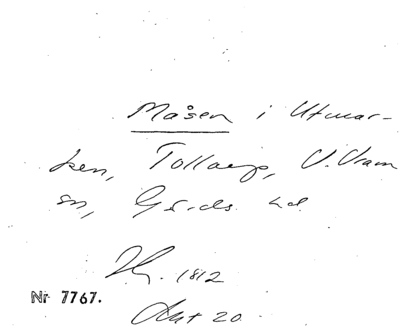 Måsen i Utmar-
ken, Tollarp, V. Vram
sn, Gärds hd
1812
Nr 7767.
Akt 20